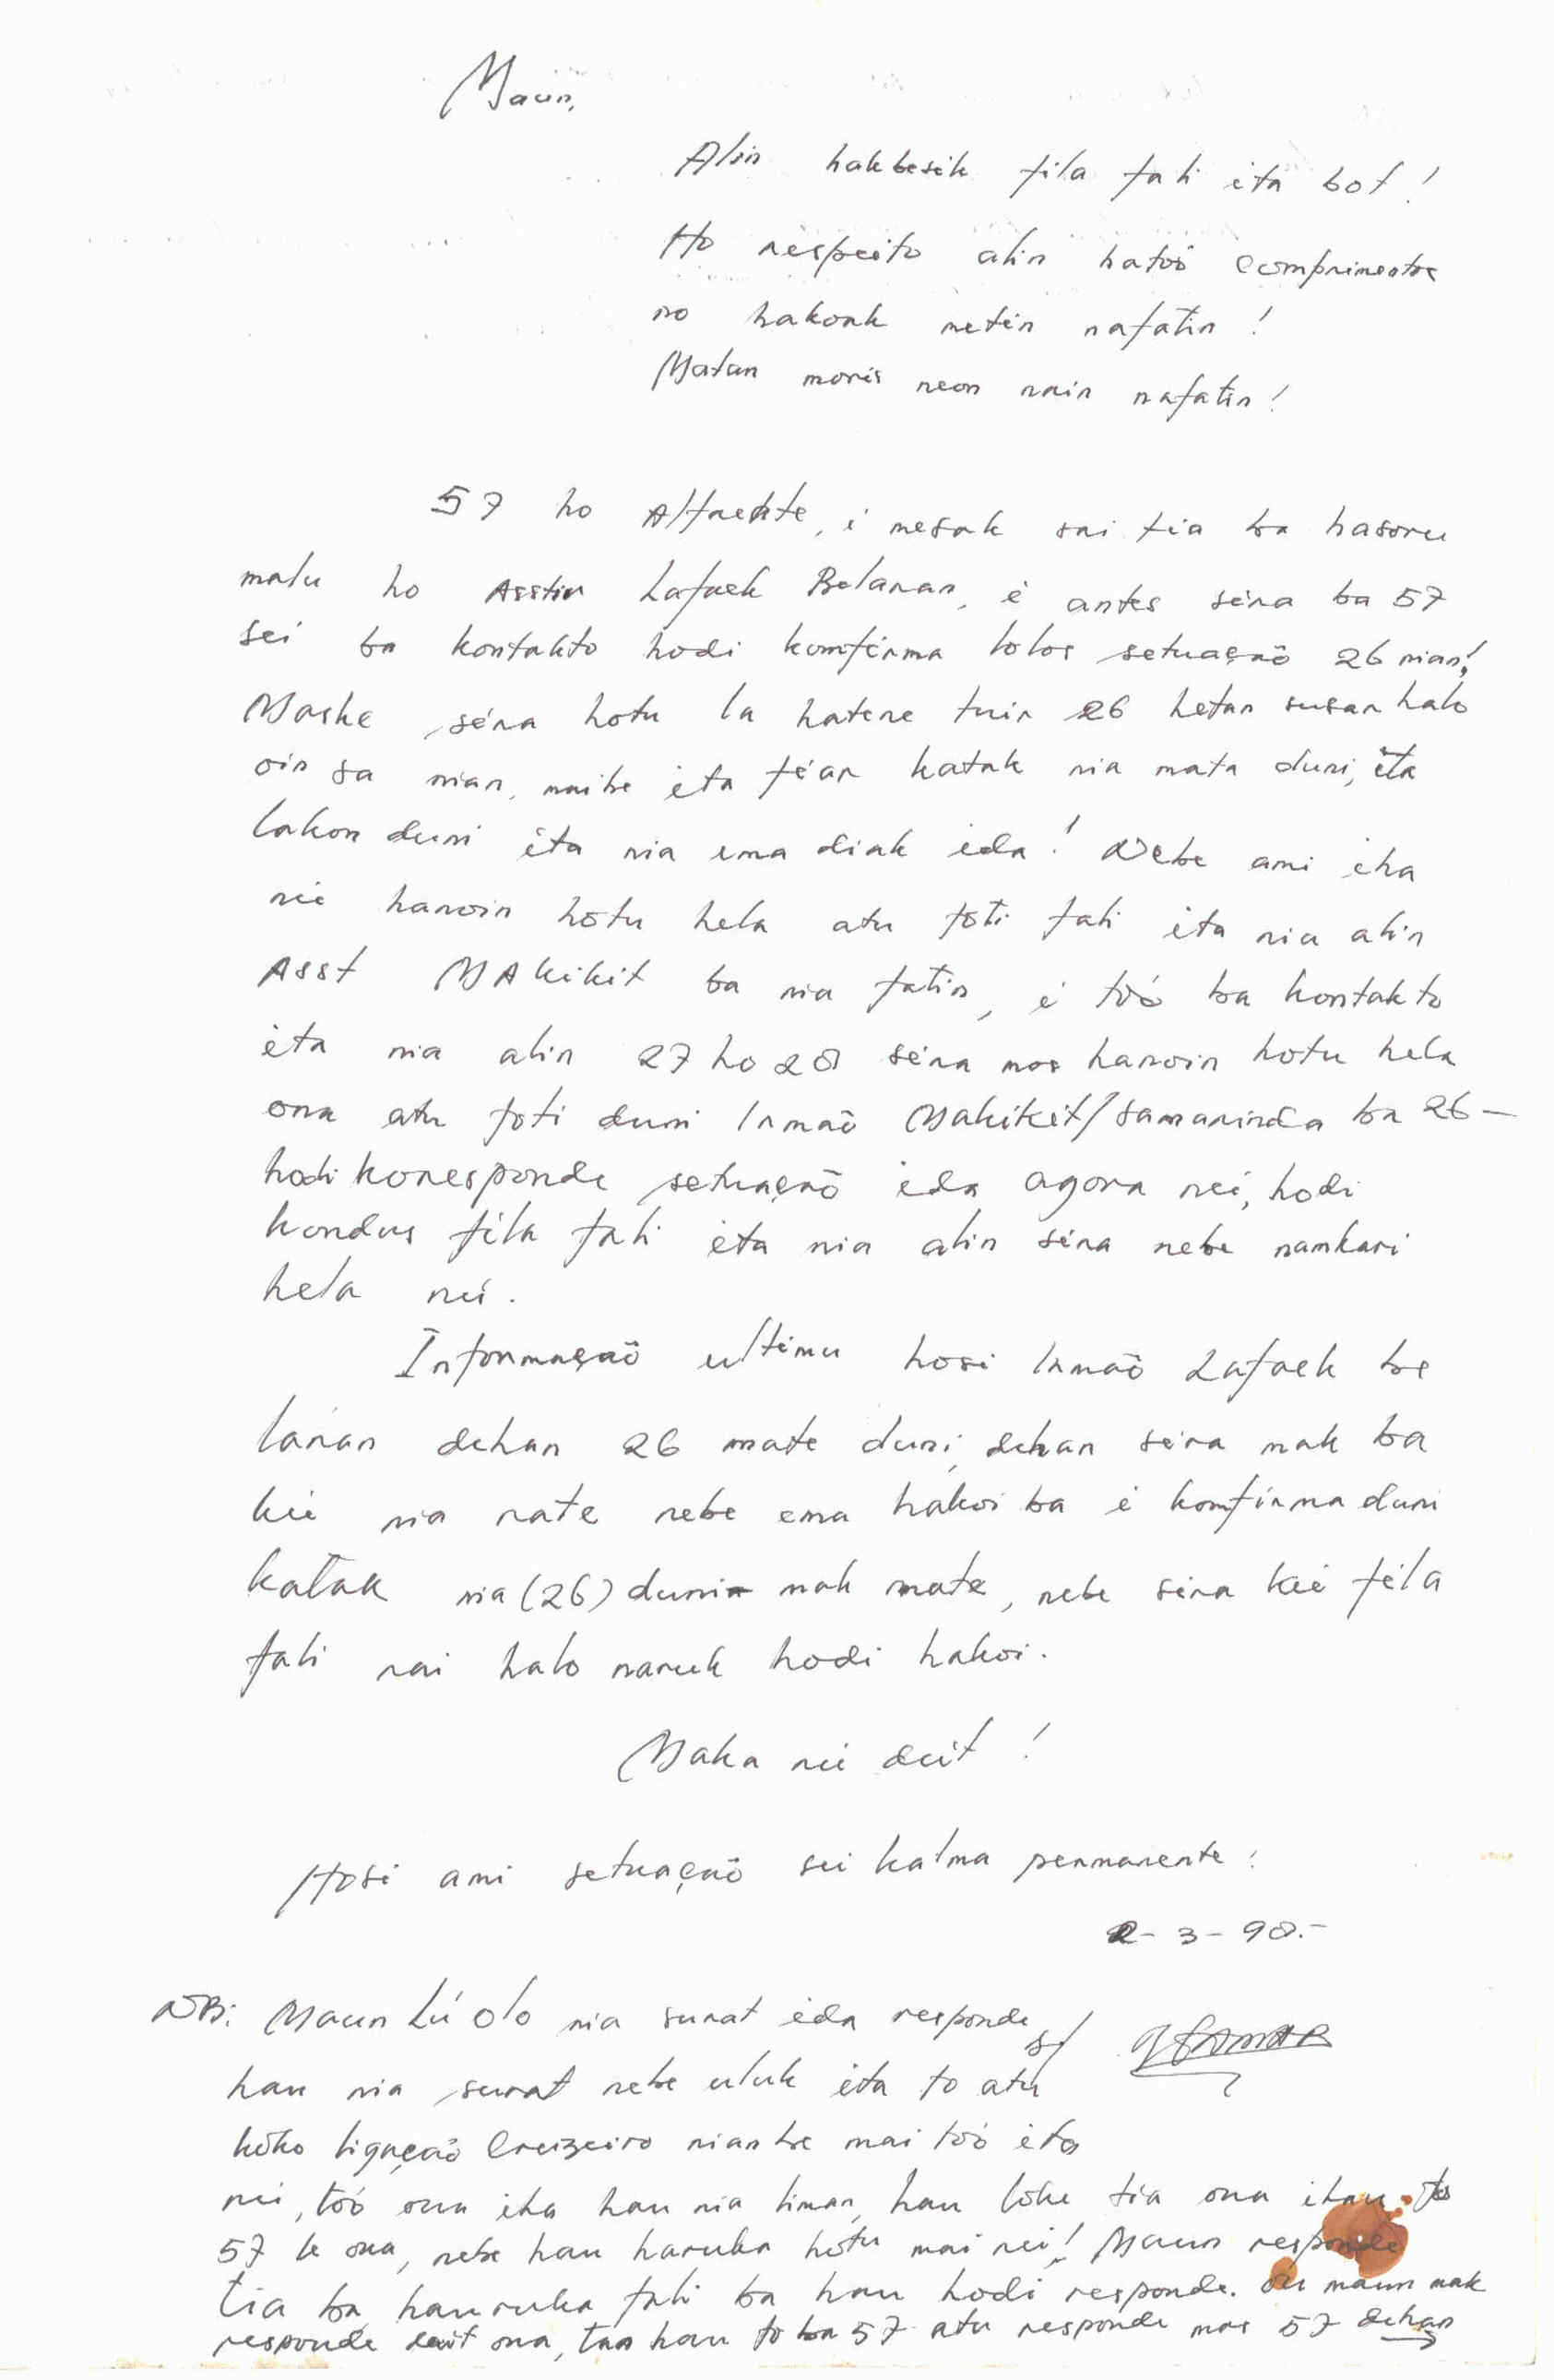 Maun,
Alin hakbesik fila fali ita bot!
Ho respeito alin hatoó comprimentos
no hakoak metin nafatin!
Matan moris neon nain nafatin!
57 ho Alfaehte, i mesak sai tia ba hasoru
malu ho Asstin Lafaek Belanan, i antes sira ba 57
sei ba kontakto hodi komfirma lolos setuação 26 nian!
Maske sira hotu la hatene tuir 26 hetan susar halo
oin sa nian, maibe ita fiar katak nia mata duni, ita
lakon duni ita nia ema diak ida! Nebe ami iha
nii hanoin hotu hela atu foti fali ita nia alin
Asst MAkikit ba nia fatin, i toó ba kontakto
ita nia alin 27 ho 28 sira mos hanoin hotu hela
ona atu foti duni Irmaõ Makikit/Samarinda ba 26-
hodi koresponde setuaçaõ ida agora nei, hodi
kondus fila fali ita nia alin sira nebe namkari
hela nei.
Informaçaõ ultimu hosi Irmaõ Lafaek be
lanan dehan 26 mate duni, dehan sira mak ba
kei nia rate nebe ema hakoi ba i komfirma duni
katak nia (26) duni mak mate, nebe sira kei fila
fali rai halo naruk hodi hakoi.
Maka nei deit!
Hosi ami setuaçaõ sei kalma permanente!
2-3-98.-
NB: Maun Lú Olo nia surat ida responde
hau nia surat nebe uluk ita to atu
koko ligaçaõ Cruzeiro nian be mai toó ita
nei, toó ona iha hau nia liman, hau loke tia ona
57 le ona, nebe hau haruka hotu mai nei! Maun responde
tia ba haruka fali ba hau hodi responde. Ou maun mak
responde deit ona, tan hau to ba 57 atu responde mas 57 dehan